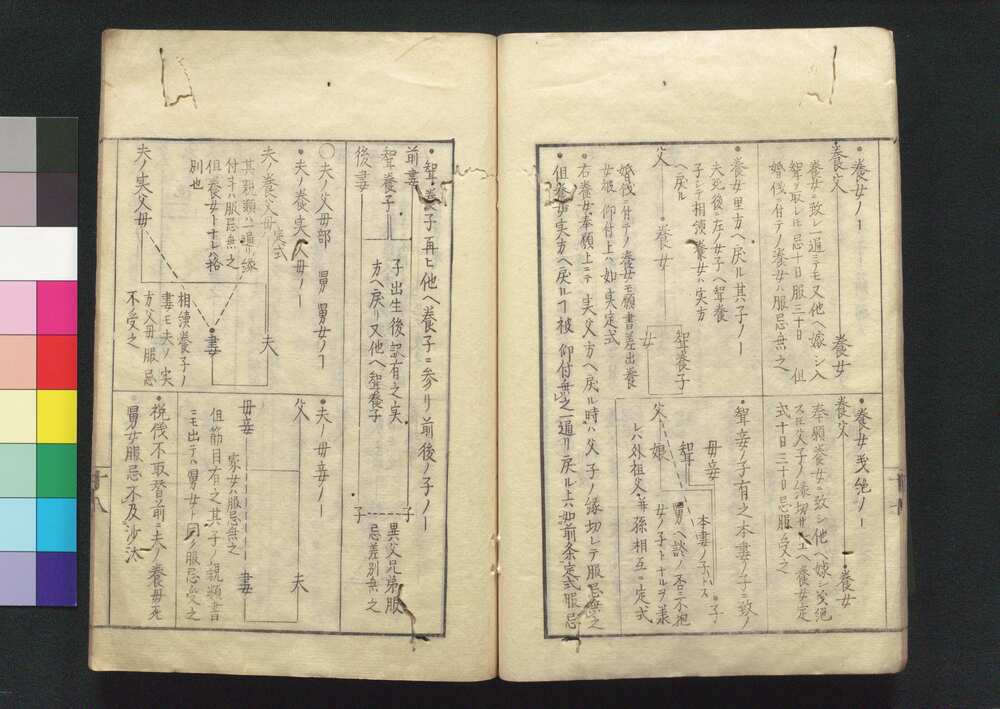 ・養女ノ丁
養父
養女
養女ニ致シ一通ニテモ又他ヘ嫁シ入
聟ヲ取レハ忌十日服三十日 但
婚儀ニ付テノ養女ハ服忌無之
・養女里方ヘ戻ル其子ノ丁
夫死後ニ左ノ女子ヘ聟養
子シテ相續養女ハ実方
ヘ戻ル
父
養女
聟養子
女
婚儀ニ付テノ養女モ願書差出養
女被 仰付上ハ如実定式
・右養女奉願上ニテ実父方ヘ戻ル時ハ父子ノ縁切レテ服忌無之
・但養女実方ヘ戻ルヿ被 仰付無之一通リ戻ル上ハ如前条定式服忌
・養女義絶ノ丁
養父
養女
奉願養女ニ致シ他ヘ嫁シ義絶
父子ノ縁切
ヘ養女定
式十日三十日忌服受之
・聟妾ノ子有之本妻ノ子ニ致ノ丁
母妾
聟
本妻ノ子トス
子
父
娘
舅ヘ談ノ否ニ不抱
女ノ子トナルヲ兼
レハ外祖父并孫相互ニ定式
十八
・聟養子再ヒ他ヘ養子ニ参リ前後ノ子ノ丁
前妻
聟養子
後妻
子出生後
有之実
方ヘ戻リ又他ヘ聟養子
子
子
異父兄弟服
忌差別無之
○夫ノ父母部 舅 舅女ノヿ
・夫ノ養実父母ノ丁
夫ノ養父母定式
其親類ハ一通リ縁
付キハ服忌無之
但養女トナレハ格
別也
夫ノ実父母
夫
妻
相續養子ノ
妻モ夫ノ実
方父母服忌
不受之
・夫ノ母妾ノ丁
父
母妾
夫
妻
家女ハ服忌無之
但筋目有之其子ノ親類書
ニモ出テハ舅女ト同ノ服忌受之
・祝儀不取替前ニ夫ノ養母死
舅女服忌不及沙汰
十八